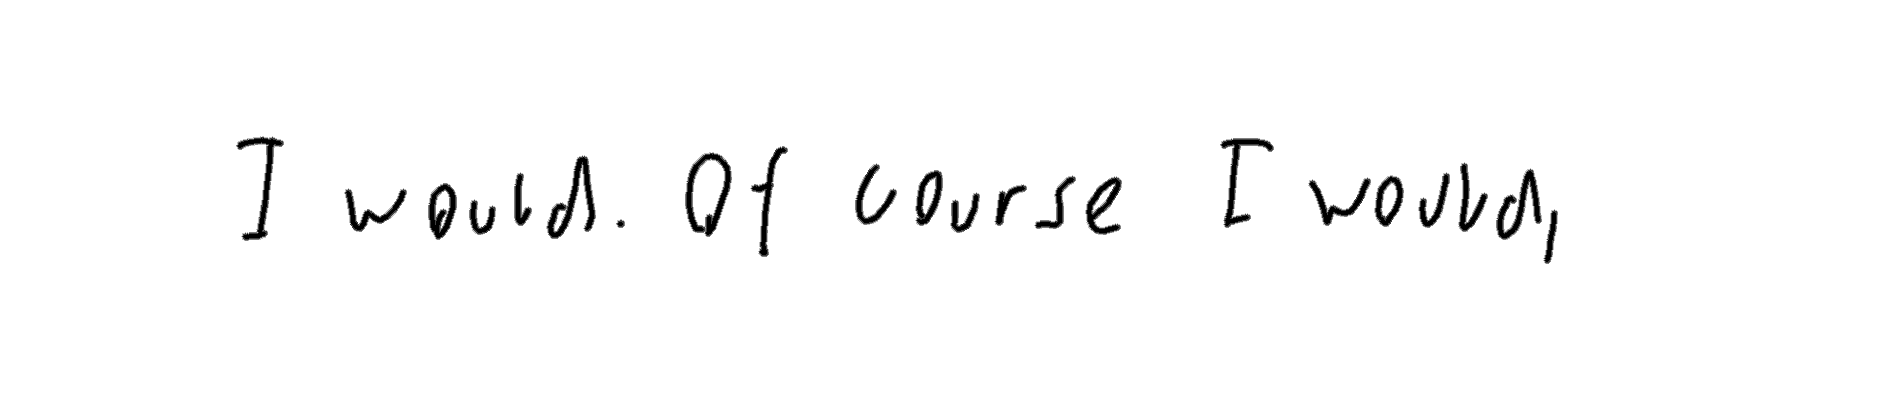 I would. Of course I would,